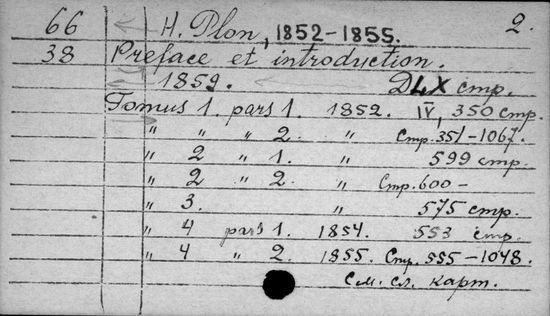 66 H. Plon, 1852-1855. 2.
38 Preface et introduction.
1859. DLX стр.
Tomus 1. pars 1. 1852. IV, 350 стр.
" " " 2. " Стр. 351-1067.
" 2 " 1. " 599 стр.
" 2 " 2. " Стр. 600-
" 3. " 575 стр.
" 4 pars 1. 1854. 553 стр.
" 4 " 2. 1855. Стр. 555-1048.
См. сл. карт.